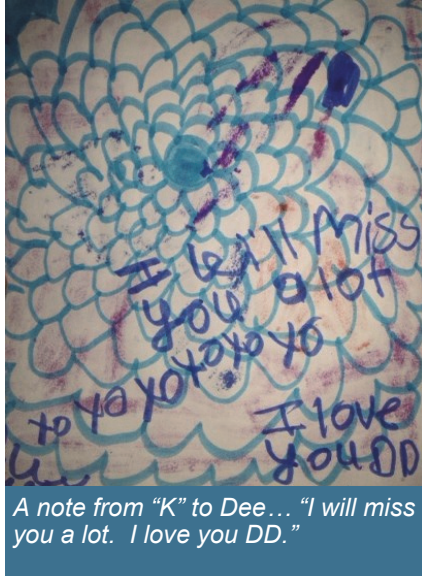 I will miss
you a lot
yo yo yo yo yo yo
I love
you DD
A note from “K” to Dee… “I will miss
you a lot.  I love you DD.”